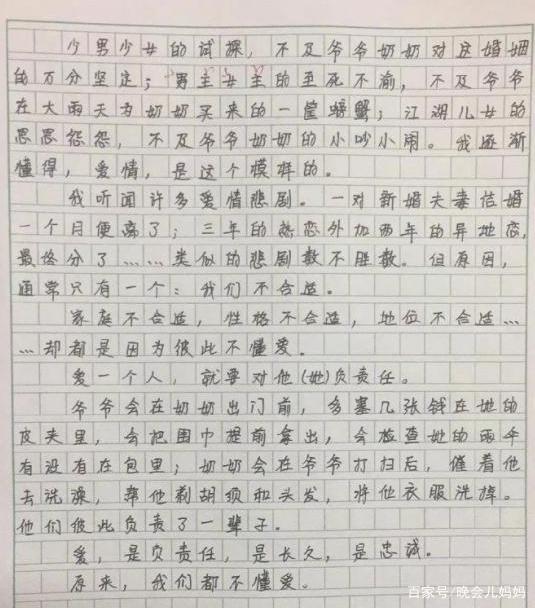 少男少女的试探，不及爷爷奶奶对这婚姻
的万分坚定；男主女主的至死不渝，不及爷爷
在大雨天为奶奶买来的一筐螃蟹；江湖儿女的
恩恩怨怨，不及爷爷奶奶的小吵小闹。我逐渐
懂得，爱情，是这个模样的。
我听闻许多爱情悲剧。一对新婚夫妻结婚
一个月便离了；三年的热恋外加两年的异地恋，
最终分了……类似的悲剧数不胜数。但原因，
通常只有一个：我们不合适。
家庭不合适，性格不合适，地位不合适…
…却都是因为彼此不懂爱。
爱一个人，就要对他(她)负责任。
爷爷会在奶奶出门前，多塞几张钱在她的
皮夹里，会把围巾提前拿出，会检查她的雨伞
有没有在包里；奶奶会在爷爷打扫后，催着他
去洗澡，帮他剃胡须和头发，将他衣服洗掉。
他们彼此负责了一辈子。
爱，是负责任，是长久，是忠诚。
原来，我们都不懂爱。
百家号/晚会儿妈妈